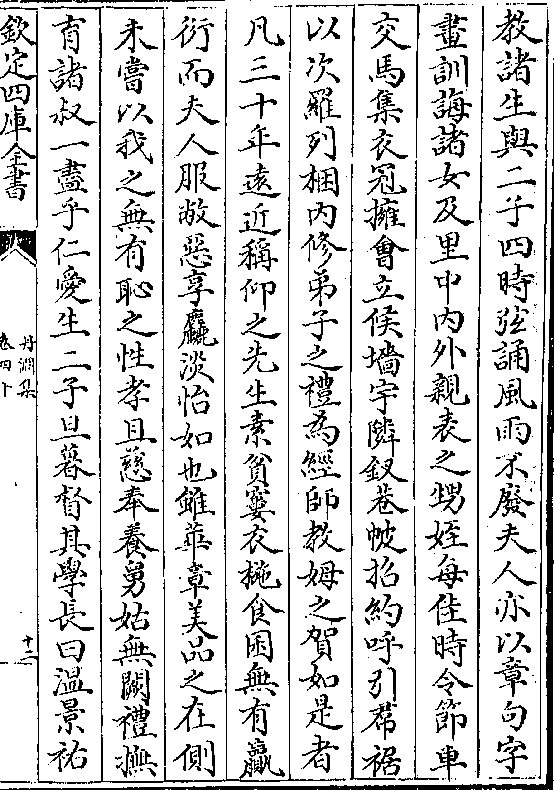 教諸生與二子四時弦誦風雨不廢夫人亦以章句字
畫訓誨諸女及里中内外親表之甥姪每佳時令節車
交馬集衣冠擁會立侯墻宇隣釵巷帔招約呼引帬裾
以次羅列梱内修弟子之禮為經師教姆之賀如是者
凡三十年逺近稱仰之先生素貧窶衣𣑱食困無有贏
衍而夫人服敝惡享麤淡怡如也雖華章美品之在側
未嘗以我之無有恥之性孝且慈奉養舅姑無闕禮撫
育諸叔一盡乎仁愛生二子旦暮督其學長曰温景祐
欽定四庫全書
丹淵集
卷四十
十二